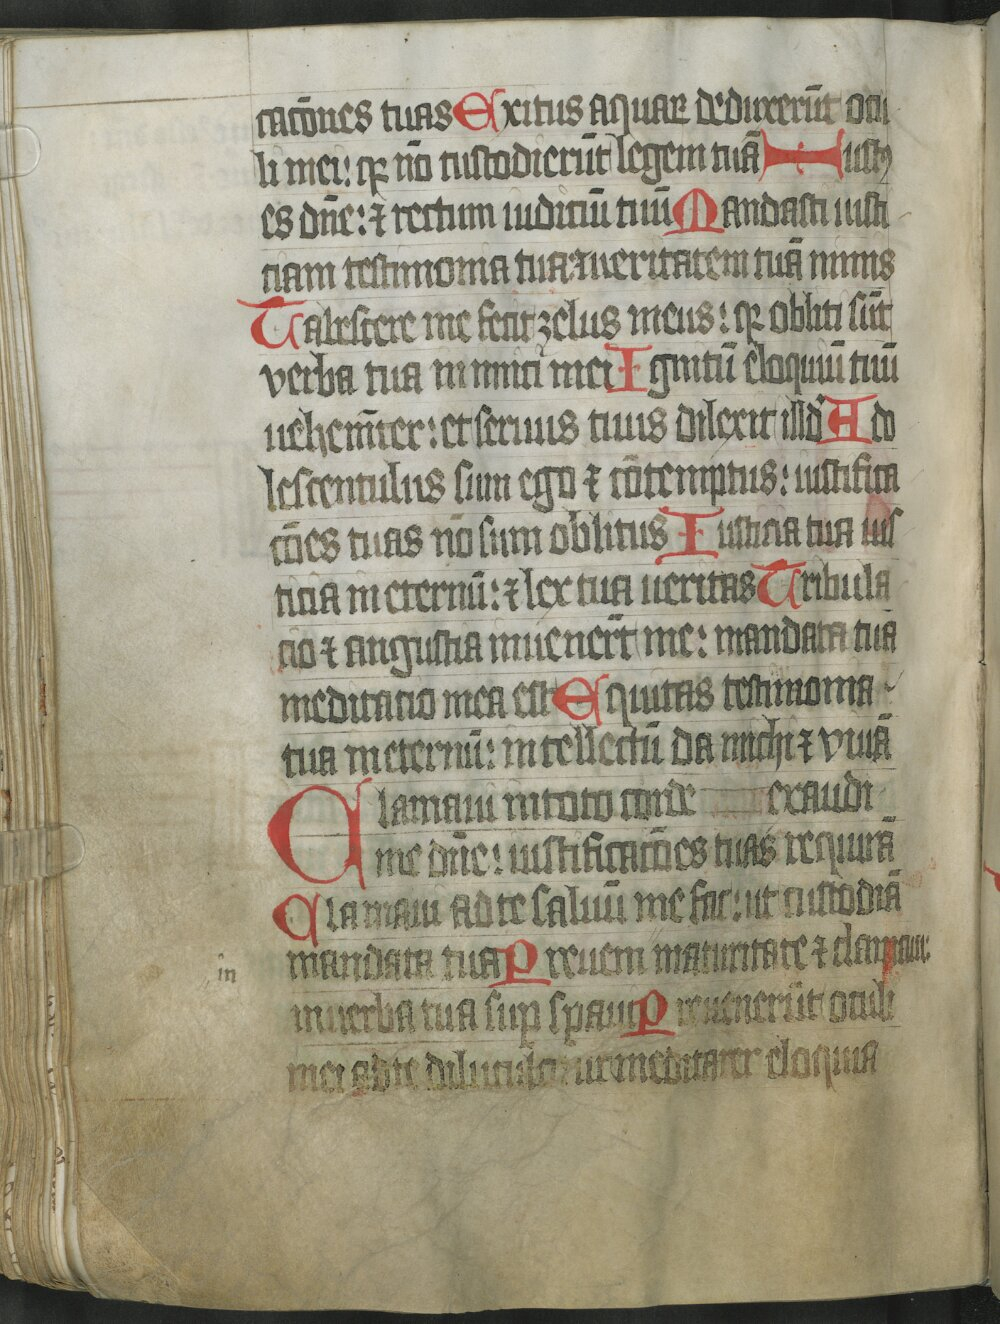 cacōnes tuas Exitus aquaꝝ deduxerūt ocu
li mei: qꝛ nō custodierūt legem tuā Iustꝰ
es dn̄e: ⁊ rectum iudiciū tuū Mandasti iusti
ciam testimonia tua: ⁊ ueritatem tuā nimis
Tabescere me fecit zelus meus: qꝛ obliti sūt
verba tua inimici mei Ignitū eloquiū tuū
uehem̄ter: et seruus tuus dilexit illd Ado
lescentulus sum ego ⁊ cōtemptus: iustifica
cōes tuas nō sum oblitus Iusticia tua ius
ticia in eternū: ⁊ lex tua ueritas Tribula
cio ⁊ angustia inuener̄t me: mandata tua
meditacio mea est Equitas testimonia
tua in eternū: intellectū da michi ⁊ viuā
Clamaui in toto corde exaudi
me dn̄e: iustificacōes tuas requirā
Clamaui ad te saluū me fac: ut custodiā
mandata tua Preueni maturitate ⁊ clamaui:
in
in uerba tua sup̄ spaui Preuenerūt oculi
mei ad te diluculo: ut meditarer eloquia